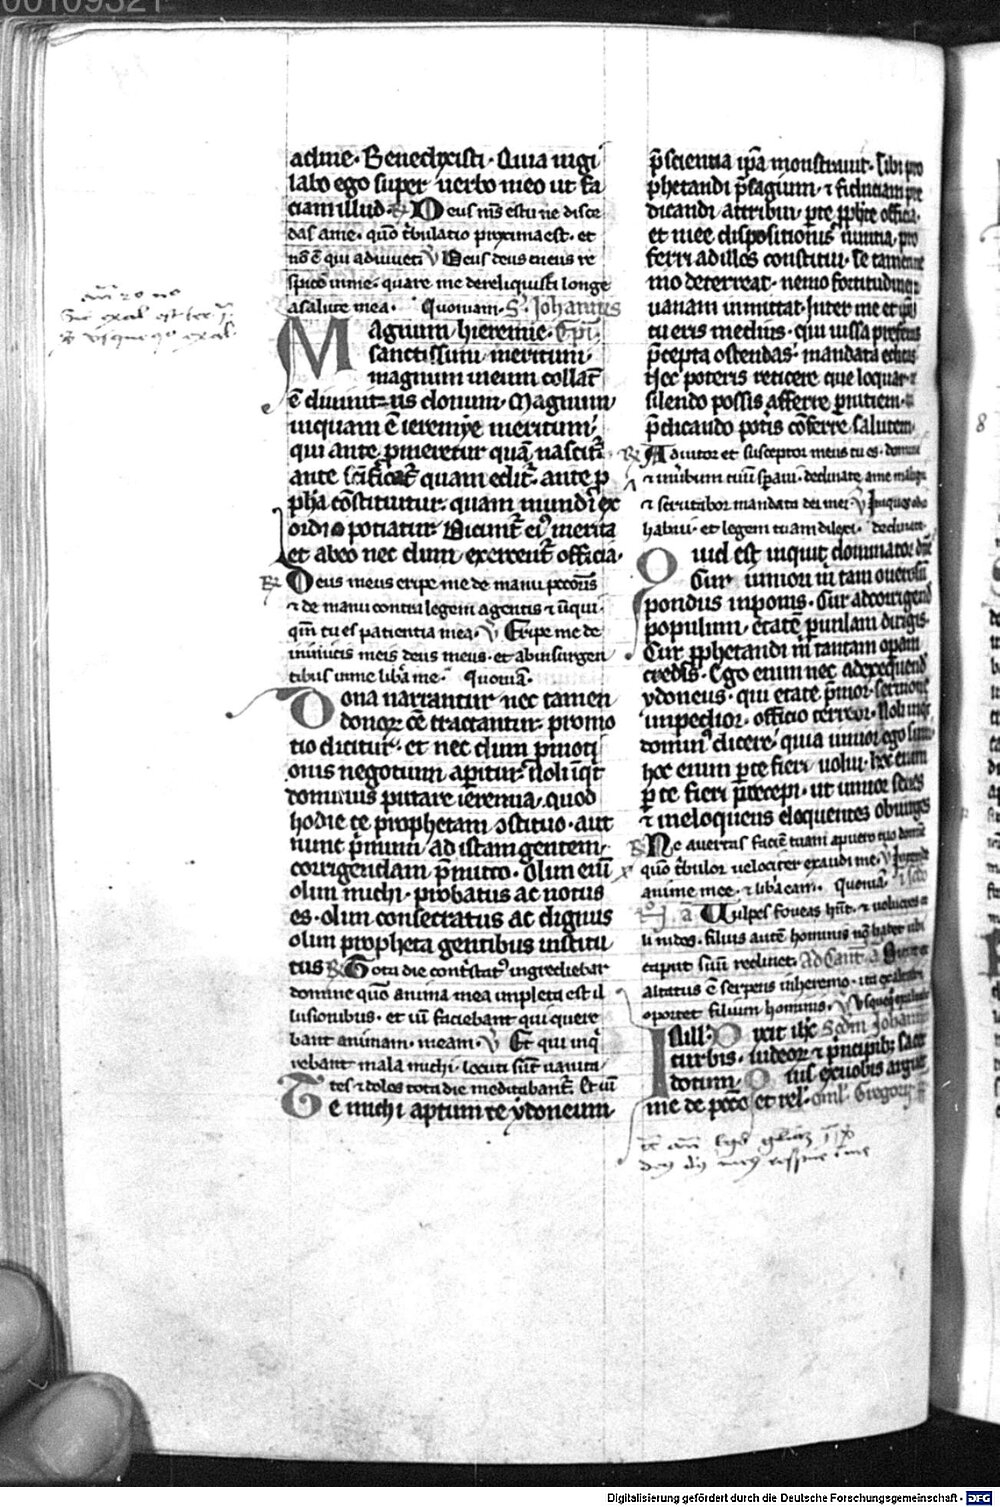 00109321
ad me. Benedixisti. Quia uigi
labo ego super uerbo meo ut fa
ciam illud. R Deus m̅s es tu ne disce
das a me. quo t̅bulatio proxima est. et
no̅ e̅ qui adiuuet. V Deus deus meus re
spice in me. quare me dereliquisti longe
a salute mea. Quoniam. S. Johannis
Magnum hieremie. Ep̅i.
sanctissimi meritum.
magnum meum collat̅
e̅ diuinit̅us donum. Magnum
inquam e̅ ieremye meritum.
qui ante p̅meretur qua̅ nascit̅.
ante sc̅ificat̅ quam edit̅. ante p
ph̅a co̅stituitur. quam mundi ex
ordio potiatur. Dicunt̅ ei merita
et abeo nec dum exercent̅ officia.
R Deus meus eripe me de manu pecc̅oris
⁊ de manu contra legem agentis ⁊ iniqui.
qm̅ tu es patientia mea. V Eripe me de
inimicis meis deus meus. et ab insurgen
tibus in me lib̅a me. Quonia̅.
Dona narrantur nec tamen
donoꝝ ce̅ tractantur. promo
tio dicitur. et nec dum p̅moti
onis negotium ap̅itur. Noli i̅qt
dominus putare ieremia. quod
hodie te prophetam ꝯstituo. aut
nunc p̅mum ad istam gentem
corrigendam p̅mitto. Olim eni̅
olim michi probatus ac notus
es. olim consecratus ac dignus
olim propheta gentibus institu
tus R Tota die cont̅stat ingrediebar
domine quo̅ anima mea impleta est il
lusionibus. et ui̅ faciebant qui quere
bant animam meam. V Et qui inq̅
rebant mala michi. locuti sunt uanita
tes ⁊ dolos tota die meditabant̅. Et ui̅
Te michi aptum te ydoneum
p̅scientia ip̅a monstrauit. Tibi pro
phetandi p̅sagium. ⁊ fiduciam pre
dicandi attribui. p̅ te p̅ph̅ie officia.
et mee dispositionis nuntia. pro
ferri ad illos constitui. Te tamen ne
mo deterreat. nemo fortitudinem
uanam inmutat. Inter me et p̅p̅m
tu eris medius. qui iussa
p̅cepta ostendas. mandata
Nec poteris reticere que loquar
silendo possis afferre
p̅dicando potis co̅ferre salutem.
R Adiutor et susceptor meus tu es. domine
⁊ in u̅bum tuu̅ sp̅aui. declinate a me maligni
⁊ scrutabor mandata dei mei. V Iniquos odio
habui. et legem tuam dilexi. declinate.
Quid est inquit dominator dn̅e
Cur iuniori m̅ tam onerosu̅
pondus inponis. Cur ad corrigend
populum. etate̅ paruulam dirigis.
Cur p̅phetandi m̅ tantam opam
credis. Ego enim nec ad exequend
ydoneus. qui etate p̅mor. sermone
inpedior. officio terreor. Noli inqt
domin dicere. quia iunior ego sum.
hoc enim p̅ te fieri uolui. hoc enim
p̅ te fieri precepi. ut iunior senes
⁊ ineloquens eloquentes obiurges
R Ne auertas facie̅ tuam a puero tuo domine
quo t̅bulor uelociter exaudi me. V Intende
anime mee. ⁊ lib̅a eam. Quonia̅
Uulpes foueas hn̅t. ⁊ uolucres
li nidos. filius aute̅ hominis no̅ habet ubi
caput suu̅ reclinet. Ad Cant. a̅ Sicut ex
altatus e̅ serpens in heremo. ita exaltari
oportet filium hominis. V Usquequo
In ill. Dixit ih̅c Scd̅m Johanne̅
turbis. iudeoꝝ ⁊ p̅ncipib; sacer
dotum. Quis ex uobis arguet
me de pecc̅o et rel. Oml. Gregorij
8
Digitalisierung gefördert durch die Deutsche Forschungsgemeinschaft - DFG